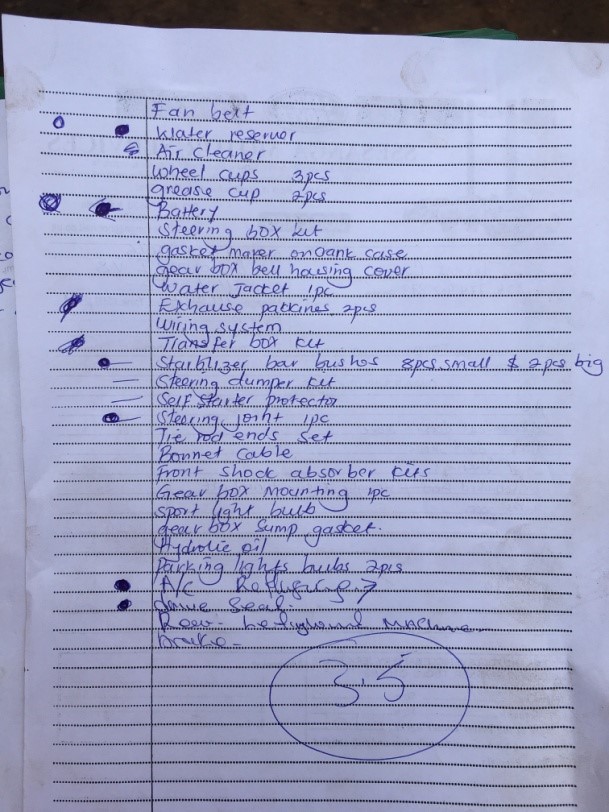 Fan belt
Water reservor
Air cleaner
Wheel cups 3pcs
grease cup 2pcs
Battery
Steering box kit
gasket maker on cank case
gear box bell housing cover
Water Jacket 1pc
Exhause packines 2pcs
Wiring system
Transfer box kit
Starblizer bar bushos 8pcs small $ 2pcs big
Steering dumper kit
Self starter protector
Steering joint 1pc
Tie rod ends set
Bonnet cable
Front shock absorber kits
Gear box mounting 1pc
sport light bulb
gear box sump gasket.
Hydrolic oil
Parking lights bulbs 2pcs
A/C
Seal.
Machine
brake
3.5